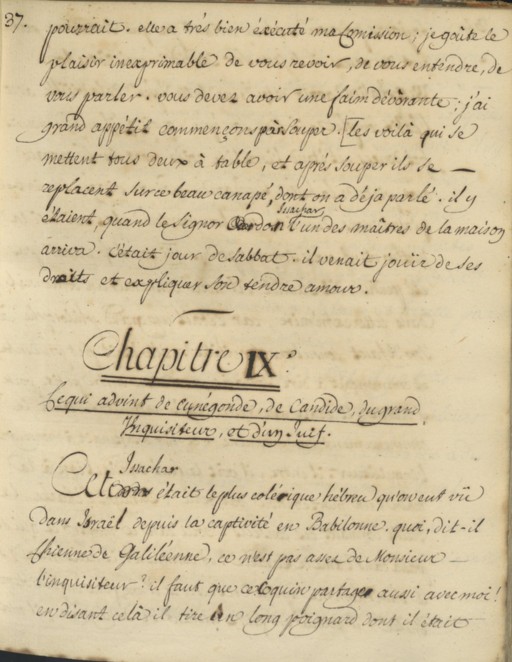 37.
pourrait. elle a trés bien éxécuté ma Comission; je goûte le
plaisir inexprimable de vous revoir, de vous entendre, de
vous parler. vous devez avoir une faim dévorante; j'ai
grand appétit commençons par souper. [les voilà qui se
mettent tous deux à table, et aprés souper ils se
replacent sur ce beau canapé, dont on a déja parlé. il y
Issachar
étaient, quand le signor l'un des maîtres de la maison
arriva. c'était jour de sabbat. il venait jouïr de ses
droits et expliquer son tendre amour.
Chapitre IX.e
Ce qui advint de cunégonde, de Candide, du grand
Inquisiteur, et d'un Juif.
Issachar
Cet était le plus colérique hébreu qu'on eut vû
dans Israël depuis la captivité en Babilonne. quoi, dit-il
Chienne de Galiléenne, ce n'est pas assez de Monsieur
l'inquisiteur? il faut que ce coquin partage aussi avec moi!
en disant celà il tire un long poignard dont il était